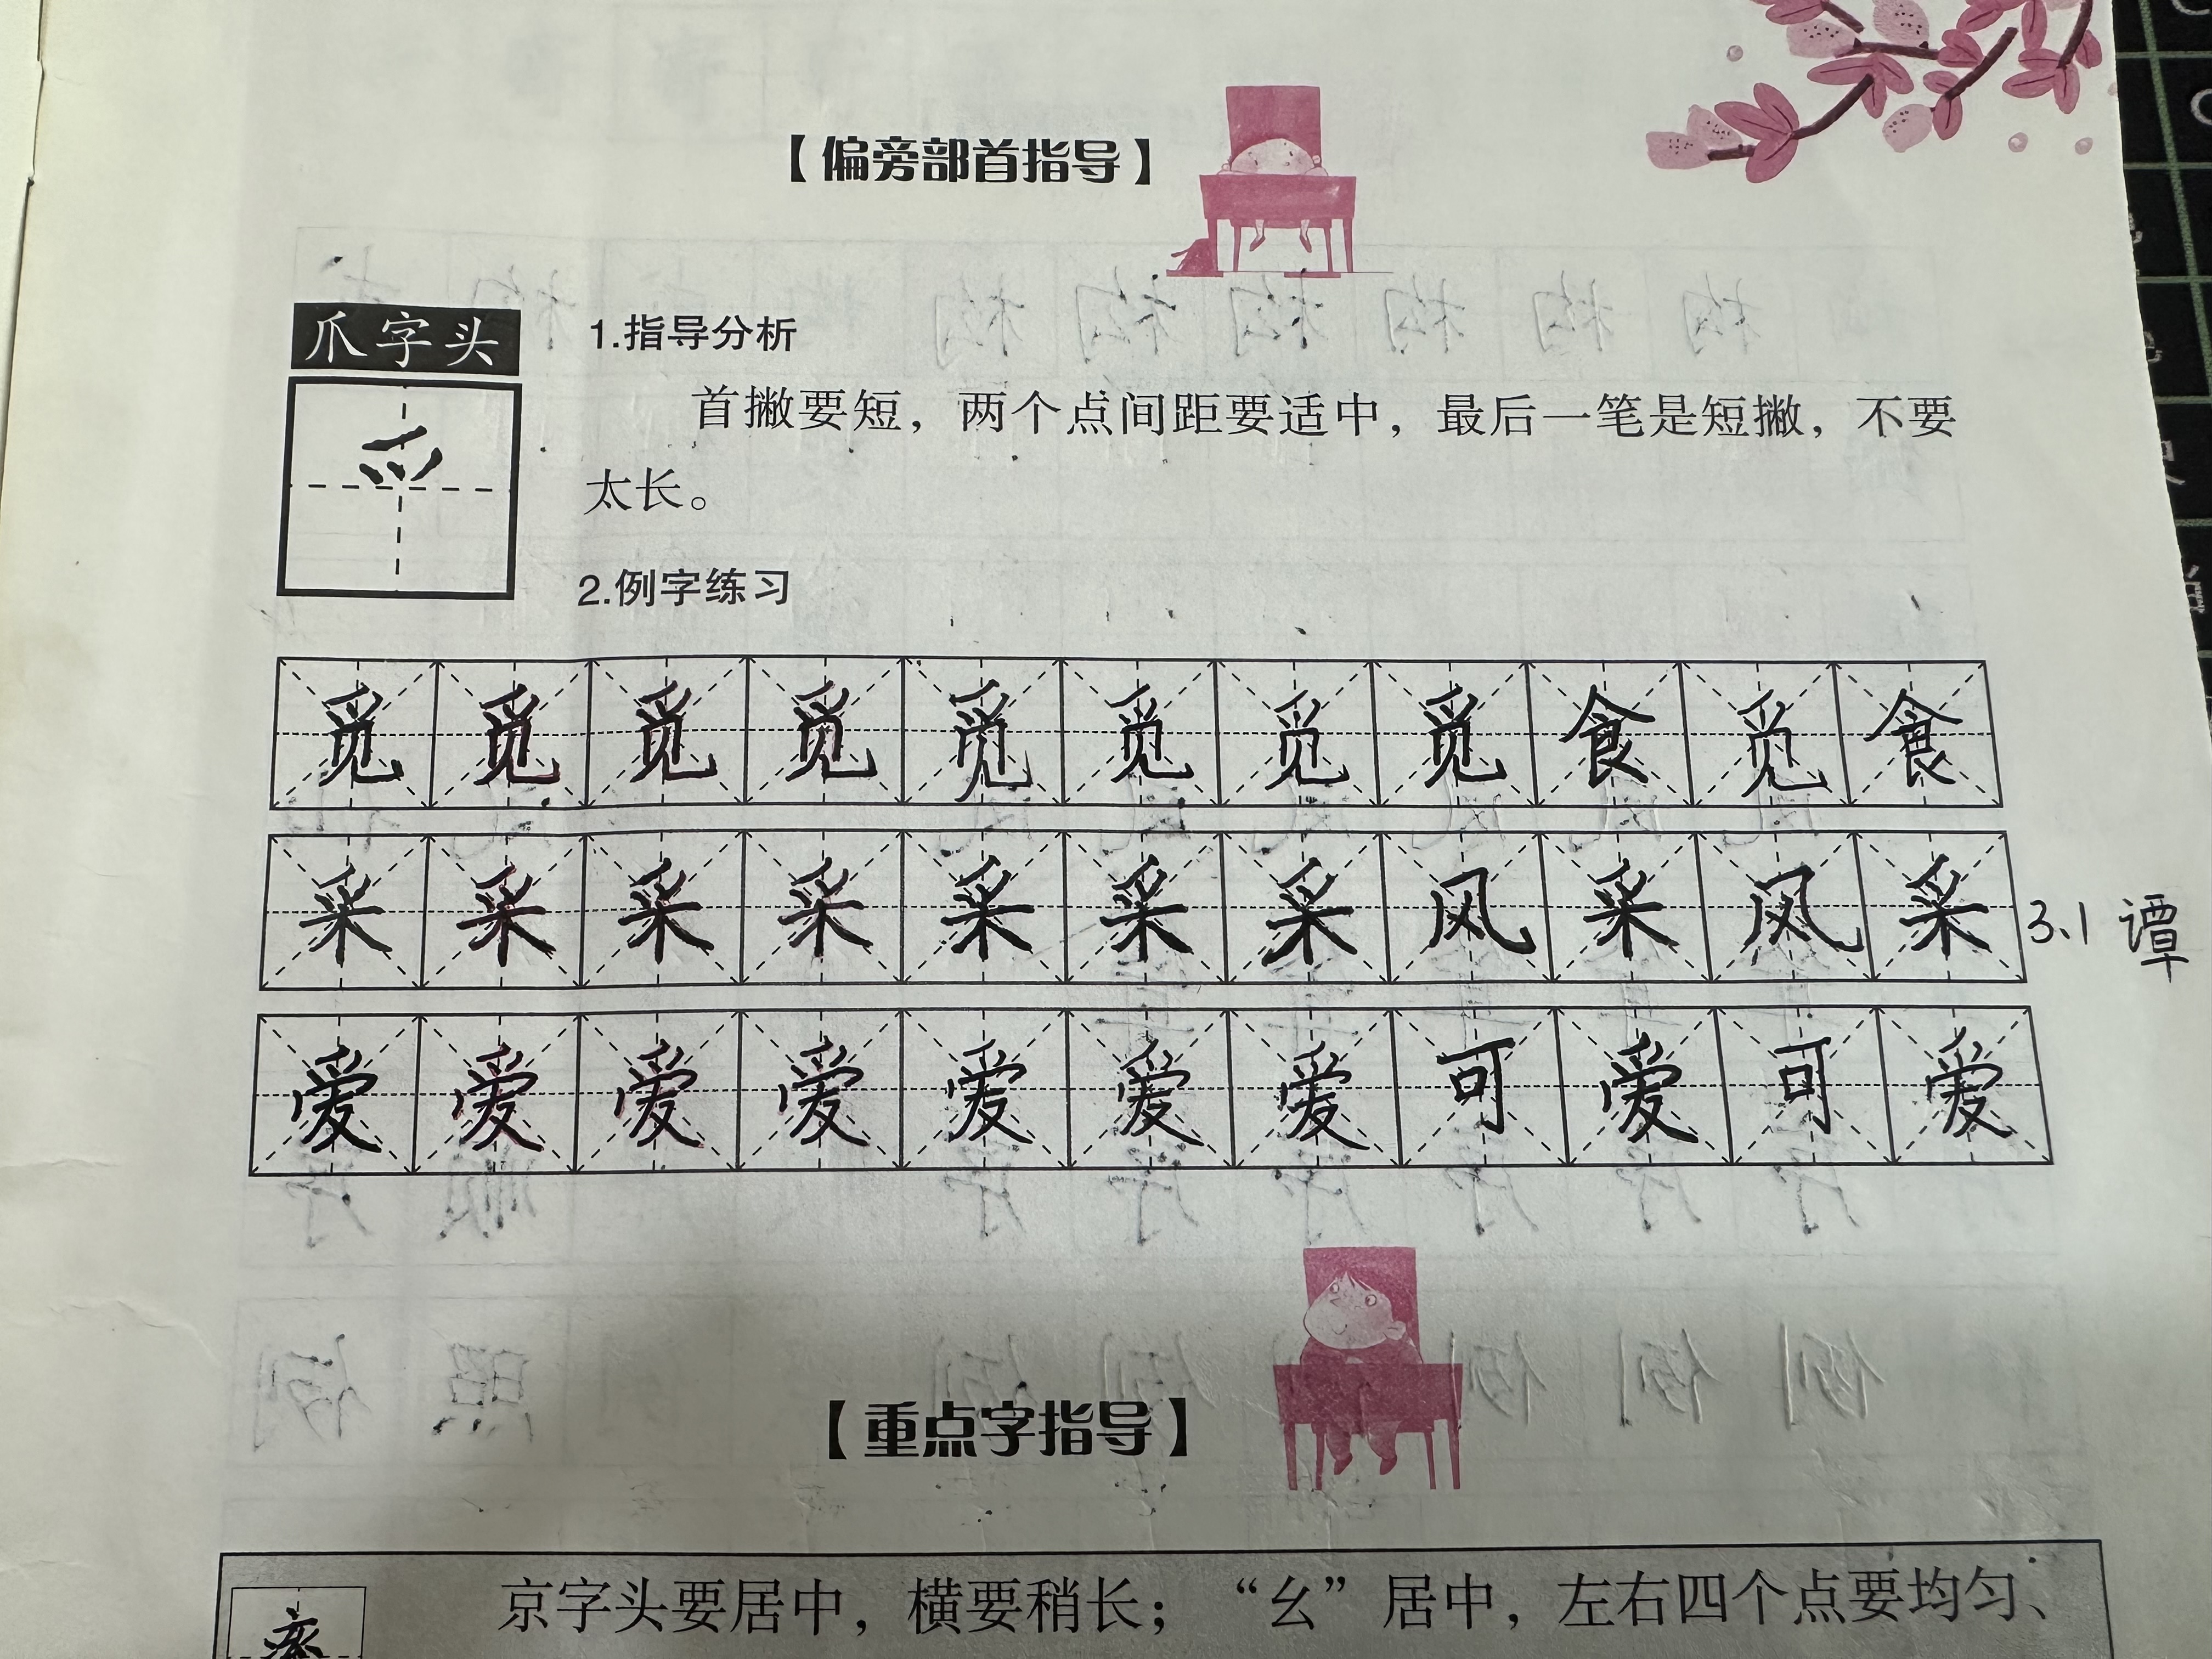 【偏旁部首指导】
爪字头
爫
1.指导分析
首撇要短，两个点间距要适中，最后一笔是短撇，不要
太长。
2.例字练习
觅觅觅觅觅觅觅觅食觅食
采采采采采采采风采风采 3、1 谭
爱爱爱爱爱爱爱可爱可爱
【重点字指导】
京字头要居中，横要稍长；“幺”居中，左右四个点要均匀、